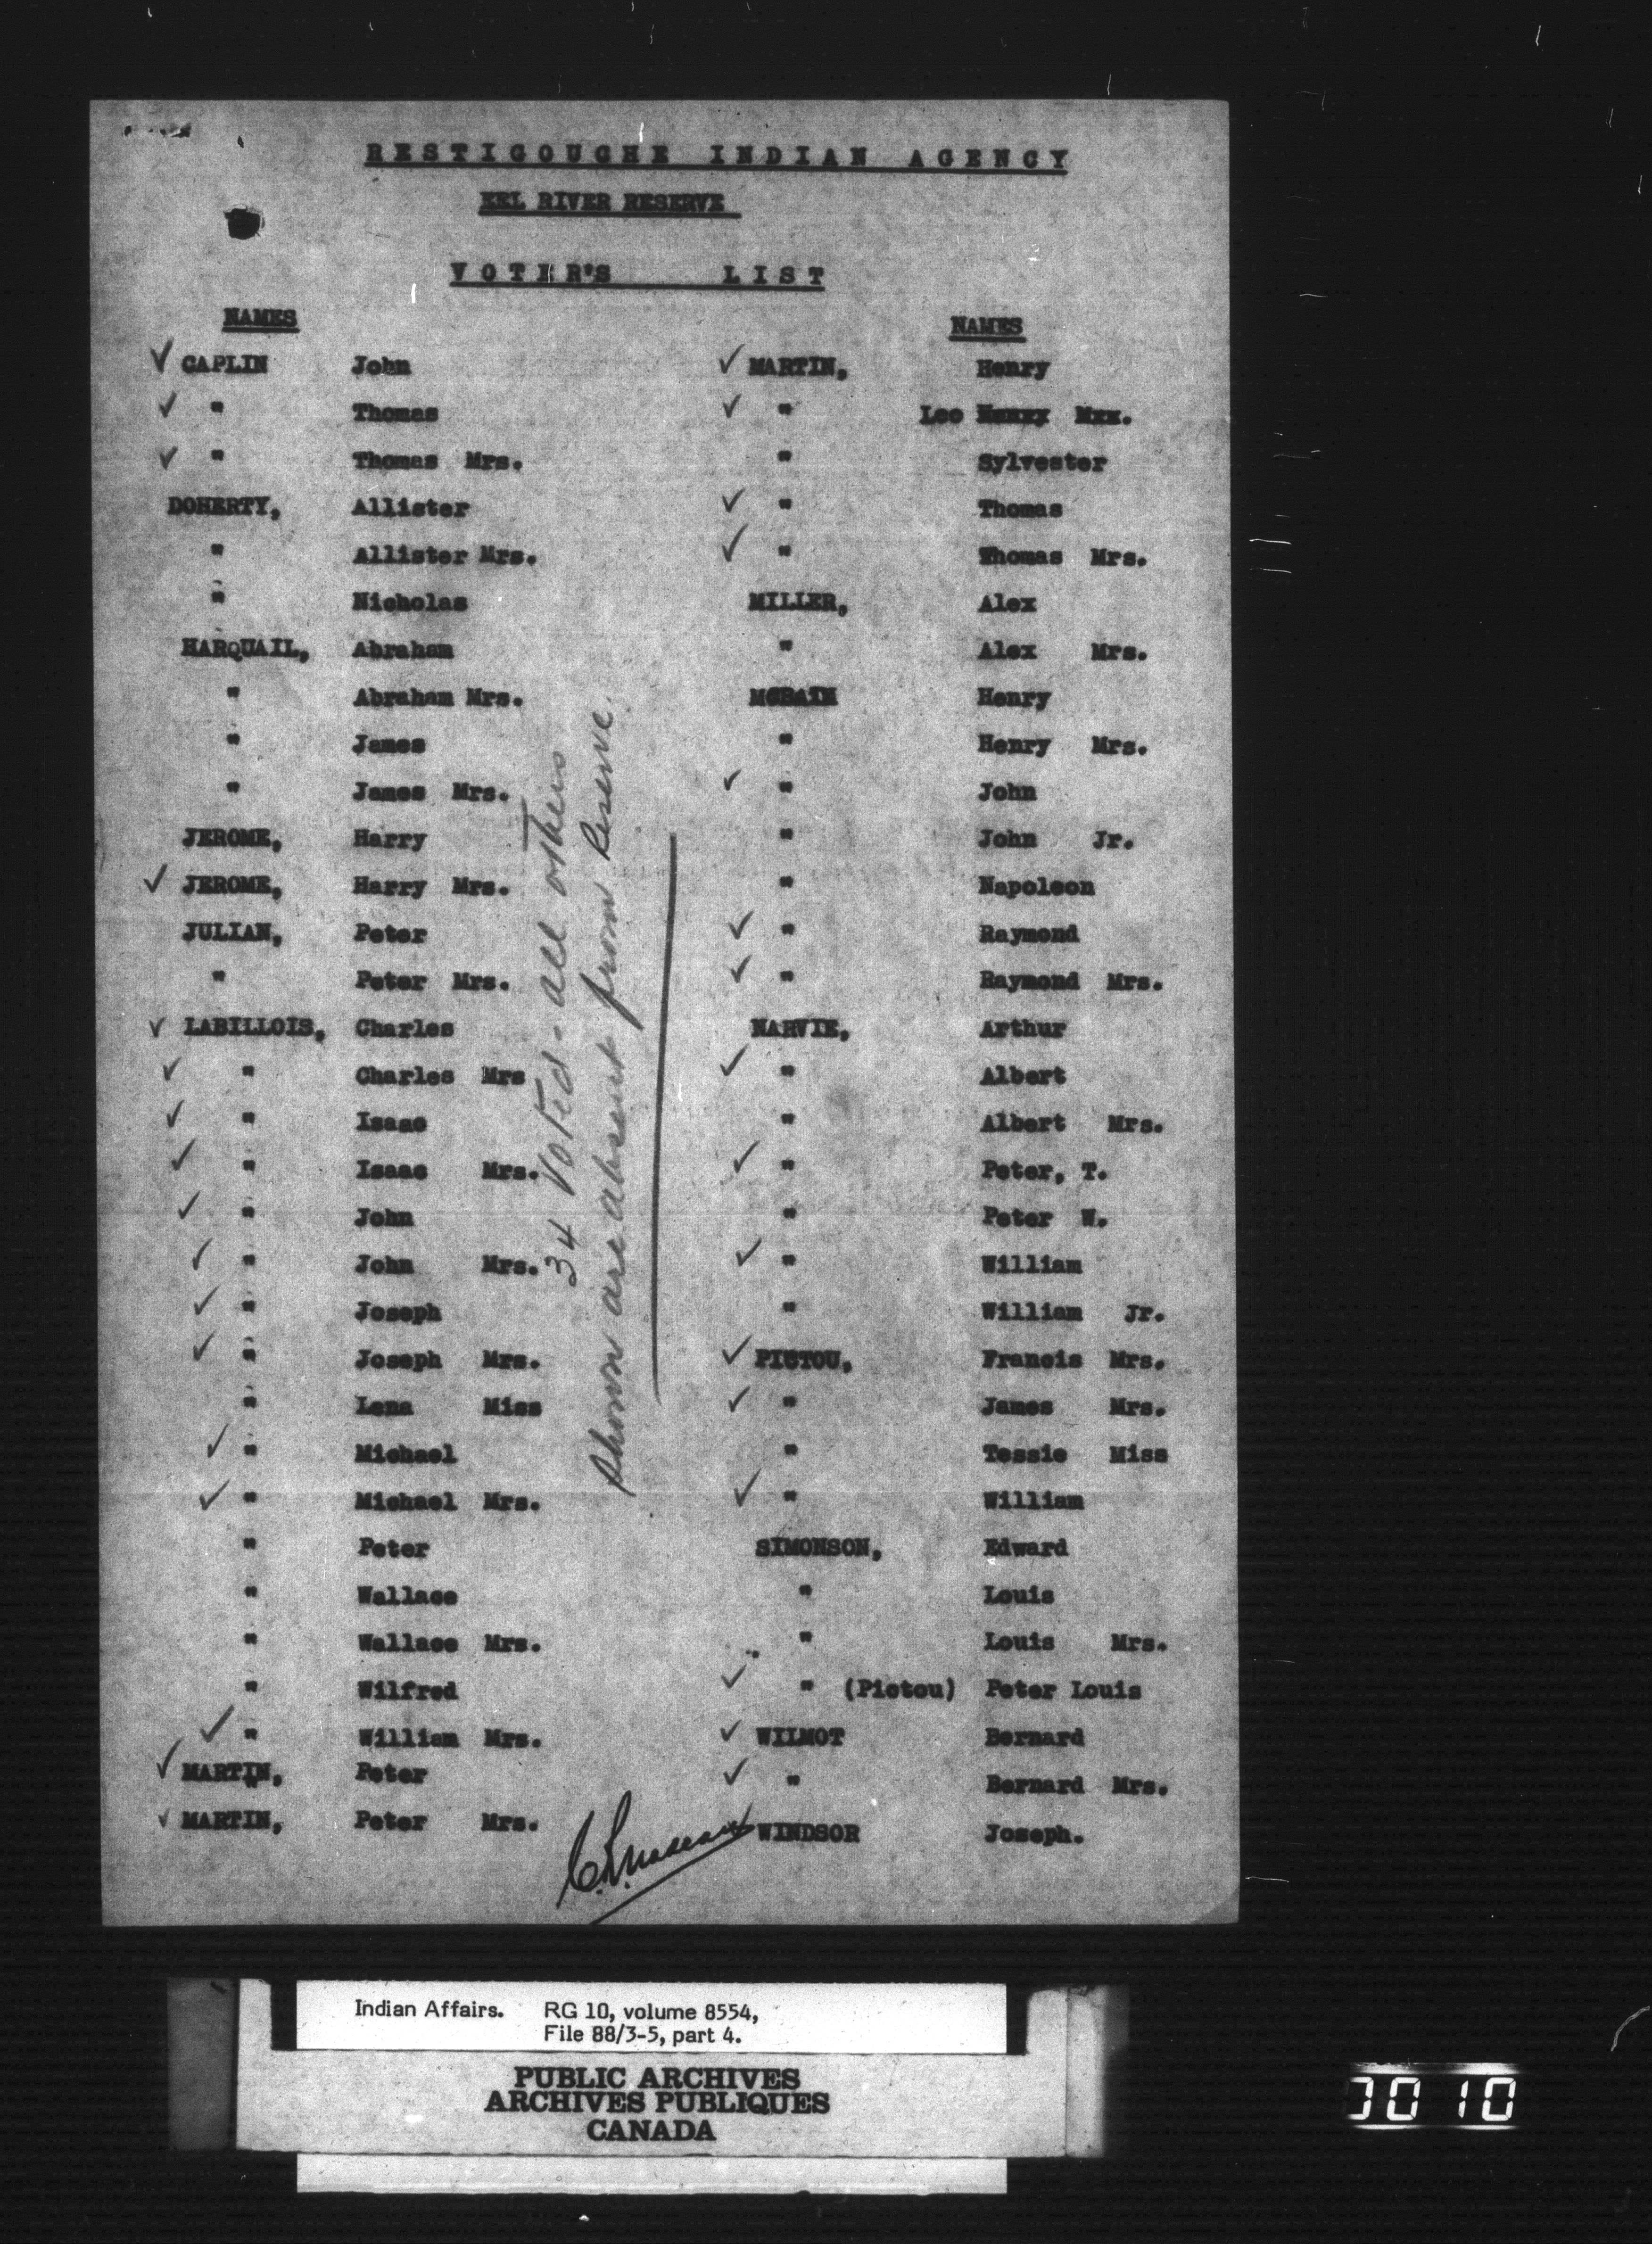 RESTIGOUCHE INDIAN AGENCY
EEL RIVER RESERVE
VOTER'S LIST
NAMES
✓ CAPLIN John
✓ " Thomas
✓ " Thomas Mrs.
DOHERTY, Allister
" Allister Mrs.
" Nicholas
HARQUAIL, Abraham
" Abraham Mrs.
" James
" James Mrs.
JEROME, Harry
✓ JEROME, Harry Mrs.
JULIAN, Peter
" Peter Mrs.
✓ LABILLOIS, Charles
✓ " Charles Mrs
✓ " Isaac
✓ " Isaac Mrs.
✓ " John
✓ " John Mrs.
✓ " Joseph
✓ " Joseph Mrs.
" Lena Miss
✓ " Michael
✓ " Michael Mrs.
" Peter
" Wallace
" Wallace Mrs.
" Wilfred
✓ " William Mrs.
✓ MARTIN, Peter
✓ MARTIN, Peter Mrs.
34 Voted - all others
shown are absent from Reserve.
NAMES
✓ MARTIN, Henry
✓ " Leo Henry Mrs.
" Sylvester
✓ " Thomas
✓ " Thomas Mrs.
MILLER, Alex
" Alex Mrs.
Henry
" Henry Mrs.
✓ " John
" John Jr.
" Napoleon
✓ " Raymond
✓ " Raymond Mrs.
NARVIE, Arthur
✓ " Albert
" Albert Mrs.
✓ " Peter, T.
" Peter W.
✓ " William
" William Jr.
✓ PICTOU, Francis Mrs.
✓ " James Mrs.
" Tessie Miss
✓ " William
SIMONSON, Edward
" Louis
" Louis Mrs.
✓ " (Pictou) Peter Louis
✓ WILMOT Bernard
✓ " Bernard Mrs.
✓ WINDSOR Joseph.
Indian Affairs. RG 10, volume 8554,
File 88/3-5, part 4.
PUBLIC ARCHIVES
ARCHIVES PUBLIQUES
CANADA
0010